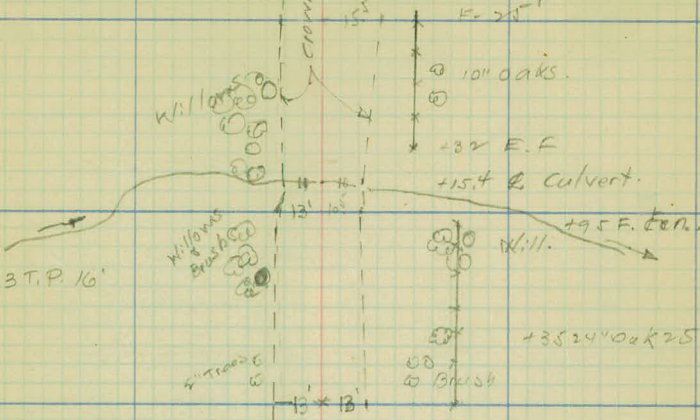 15.5
F- 25'
Crown
10" oaks.
Willows
+32 E. F
+15.4 ℄ Culvert.
13'
+95 F. Fen.
Willows
&
Brush
Will.
3 T.P. 16'
+35 24" Oak 25
Trees
Brush
13' 13'